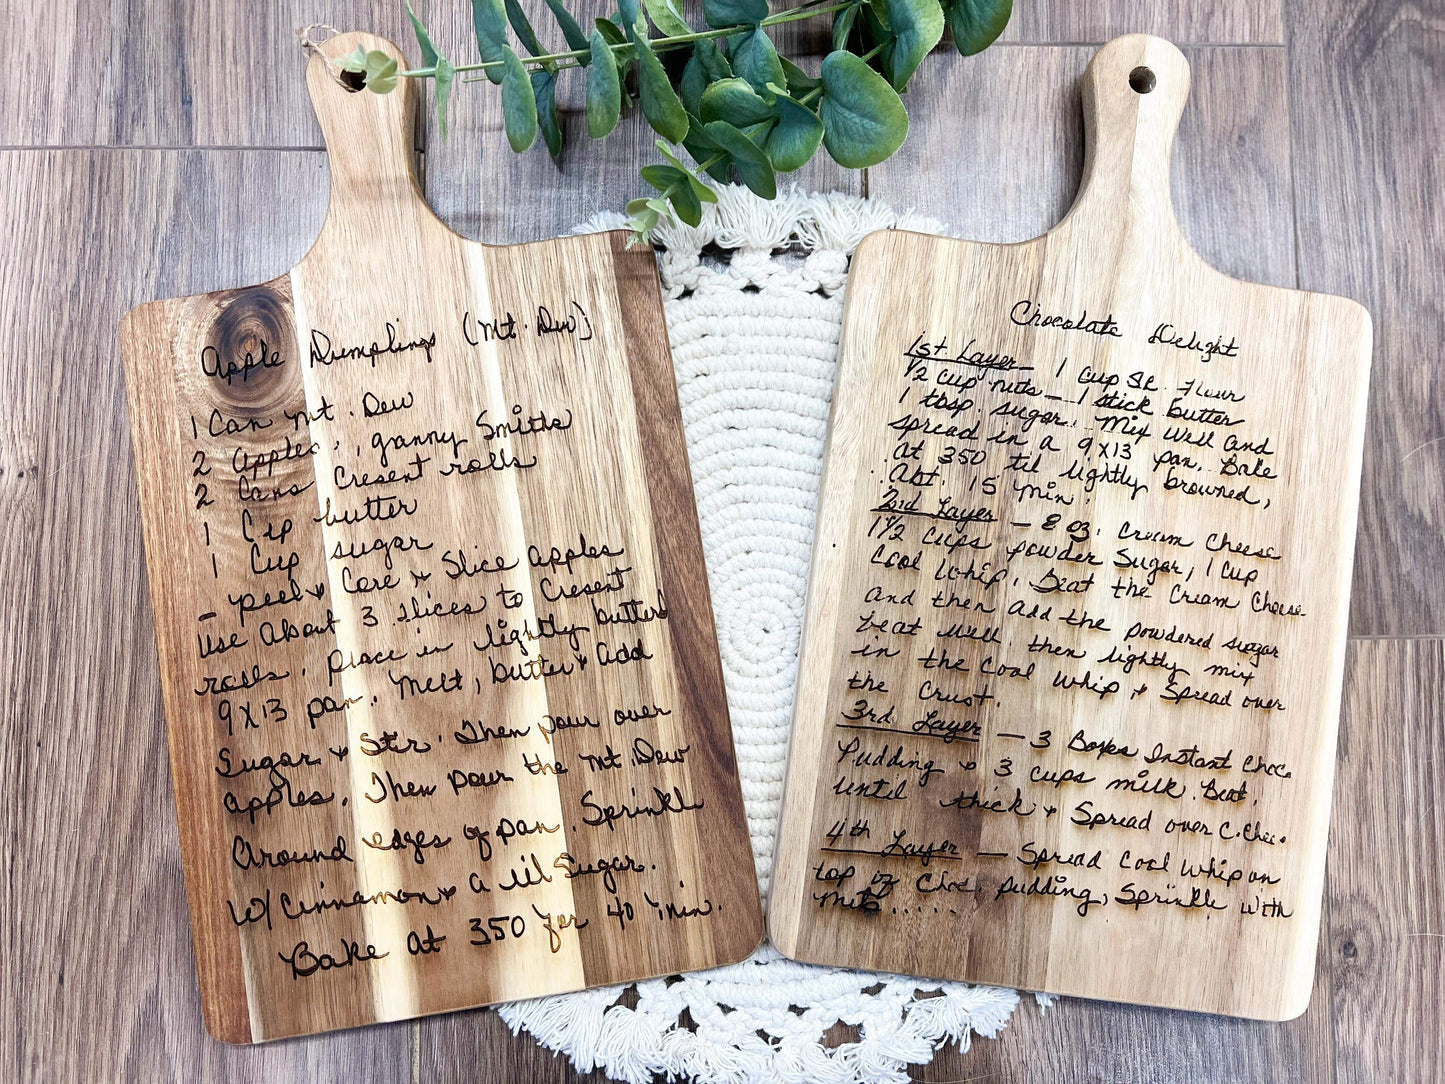 Apple Dumplings (Mt. Dew)
1 Can Mt. Dew
2 apples, granny Smiths
2 Cans Cresent rolls
1 Cup butter
1 Cup sugar
- peel & Core & Slice apples
Use About 3 slices to Cresent
rolls. place in lightly butterd
9X13 pan. Melt, butter & add
Sugar & Stir. Then pour over
apples. Then pour the Mt. Dew
Around edges of pan. Sprinkle
W/Cinnamon & a lil Sugar.
Bake at 350 for 40 min.
Chocolate Delight
1st Layer - 1 Cup SR. Flour
1/2 cup nuts - 1 stick butter
1 tbsp. sugar. Mix well and
spread in a 9X13 pan. Bake
at 350 til lightly browned,
Abt. 15 min.
2nd Layer - 8 oz. Cream Cheese
1 1/2 cups powder Sugar, 1 cup
Cool Whip. Beat the Cream Cheese
and then add the powdered sugar
beat well. then lightly mix
in the Cool Whip & Spread over
the Crust.
3rd Layer - 3 Boxes Instant Choc.
Pudding & 3 cups milk. Beat.
until thick & Spread over C. Chee.
4th Layer - Spread Cool Whip on
top of Choc. pudding, Sprinkle with
nuts......